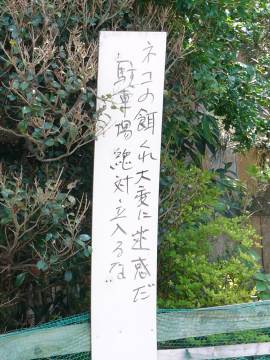 ネコの餌くれ大変に迷惑だ
駐車場絶対立入るな